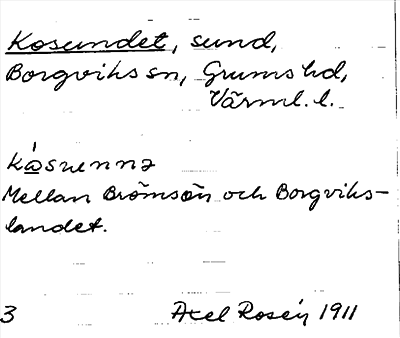 Kosundet, sund,
Borgviks sn, Grums hd,
Värml. l.
Mellan Brömsön och Borgviks-
landet.
3 Axel Rosén 1911